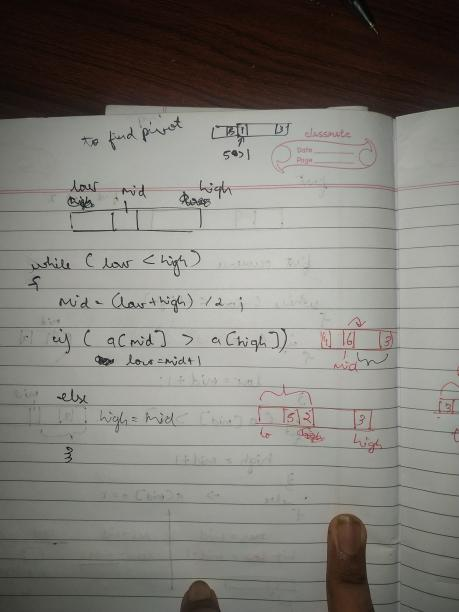 to find pivot
5 1 3
5 > 1
classmate
Date
Page
low mid high
while ( low < high)
{
mid = (low + high) / 2 ;
if ( a[mid] > a[high])
low = mid + 1
4 6 3
mid
else
high = mid
5 2 3
lo high
}